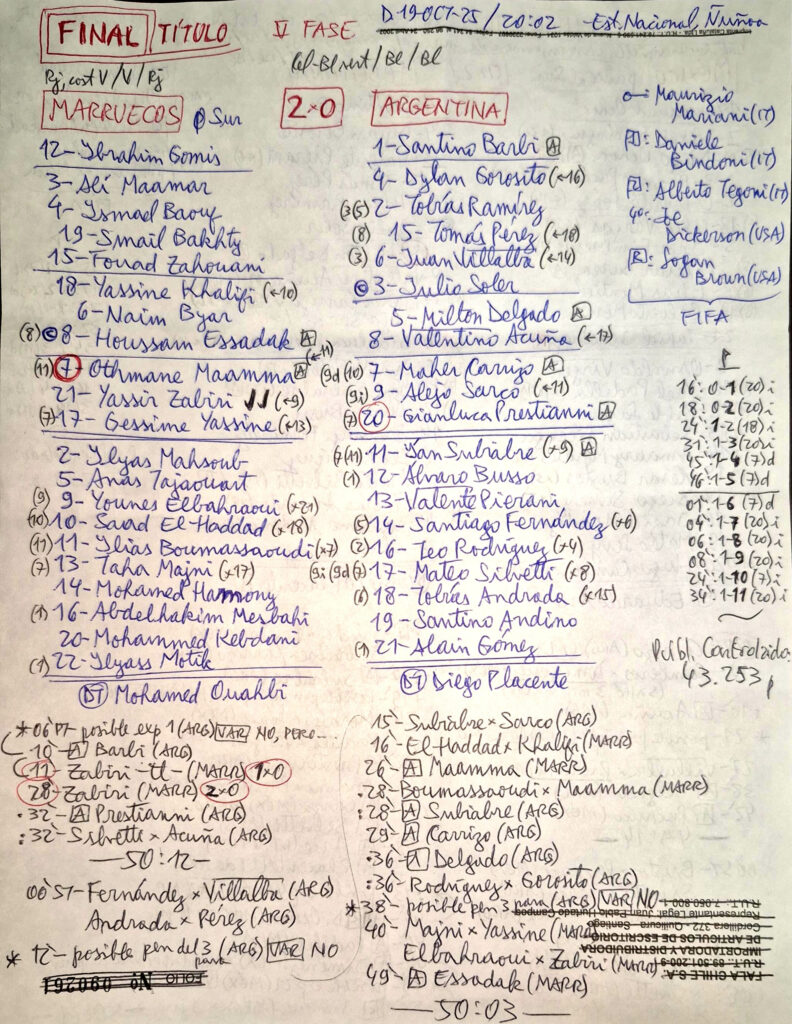 FINAL TÍTULO V FASE D-19-OCT-25/20:02 -Est. Nacional, Ñuñoa
Rj, cost V/V/Rj Cel-Bl vert/Bl/Bl
MARRUECOS Sur 2x0 ARGENTINA
12- Ibrahim Gomis
3- Alí Maamar
4- Ismael Baouf
19- Smail Bakhty
15- Fouad Zahouani
18- Yassine Khalifi (←10)
6- Naim Byar
(8) ©8- Houssam Essadak [A]
(11) 7- Othmane Maamma [A] (←11)
21- Yassir Zabiri JJ (←9)
(7) 17- Gessime Yassine (←13)
2- Ilyas Mahsoub
5- Anas Tajaouart
(9) 9- Younes Elbahraoui (x21)
(10) 10- Saad El-Haddad (x18)
(11) 11- Ilias Boumassaoudi (x7)
(7) 13- Taha Majni (x17)
14- Mohamed Hamony
(1) 16- Abdelhakim Mesbahi
20- Mohammed Kebdani
(1) 22- Ilyass Motik
DT Mohamed Ouahbi
1- Santino Barbi [A]
4- Dylan Gorosito (←16)
(3(5) 2- Tobías Ramírez
(8) 15- Tomás Pérez (←18)
(3) 6- Juan Villalba (←14)
©3- Julio Soler
5- Milton Delgado [A]
8- Valentino Acuña (←17)
(9d (10) 7- Maher Carrizo [A]
(9i) 9- Alejo Sarco (←11)
(7) 20- Gianluca Prestianni [A]
(7(11) 11- Ian Subiabre (x9) [A]
(1) 12- Alvaro Busso
13- Valente Pierani
(5) 14- Santiago Fernández (x6)
(2) 16- Teo Rodríguez (x4)
9i (9d (7) 17- Mateo Silvetti (x8)
(6) 18- Tobías Andrada (x15)
19- Santino Andino
(1) 21- Alain Gómez
DT Diego Placente
Maurizio
Mariani (IT)
[1]: Daniele
Bindoni (IT)
[2]: Alberto Tegoni (IT)
4º: Joe
Dickerson (USA)
[R]: Sogan
Brown (USA)
FIFA
16': 0-1 (20)i
18': 0-2 (20)i
24': 1-2 (18)i
31': 1-3 (20)i
45': 1-4 (7)d
46': 1-5 (7)d
01': 1-6 (7)d
04': 1-7 (20)i
06': 1-8 (20)i
08': 1-9 (20)i
24': 1-10 (7)i
34': 1-11 (20)i
Públ. Controlado:
43.253 p
*06' PT posible exp 1 (ARG) [VAR] NO, PERO...
10'- [A] Barbi (ARG)
11'- Zabiri -tl- (MARR) 1x0
28'- Zabiri (MARR) 2x0
·32'- [A] Prestianni (ARG)
:32'- Silvetti x Acuña (ARG)
—50:12—
00' ST- Fernández x Villalba (ARG)
Andrada x Pérez (ARG)
* 12'- posible pen del 3 para (ARG) [VAR] NO
FOLIO
Nº 090261
15'- Subiabre x Sarco (ARG)
16'- El-Haddad x Khalifi (MARR)
26'- [A] Maamma (MARR)
·28'- Boumassaoudi x Maamma (MARR)
:28'- [A] Subiabre (ARG)
29'- [A] Carrizo (ARG)
·36'- [A] Delgado (ARG)
:36'- Rodríguez x Gorosito (ARG)
*38'- posible pen 3 para (ARG) [VAR] NO
40'- Majni x Yassine (MARR)
Elbahraoui x Zabiri (MARR)
49'- [A] Essadak (MARR)
—50:03—
FALA CHILE S.A.
R.U.T. 89.501.200-9
IMPORTADORA Y DISTRIBUIDORA
DE ARTICULOS DE ESCRITORIO
Cordillera 372 - Quilicura - Santiago
Representante Legal: Juan Pablo Hurtado Campos
R.U.T. 7.050.800-1